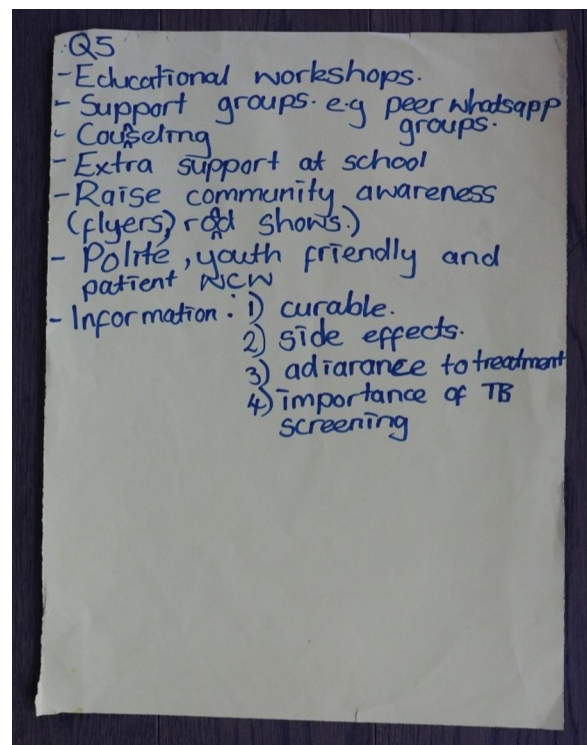 Q5
- Educational workshops.
- Support groups. e.g peer whatsapp
groups.
- Counseling
- Extra support at school
- Raise community awareness
(flyers, road shows.)
- Polite, youth friendly and
patient NCW
- Information: 1) curable.
2) side effects.
3) adiarance to treatment
4) importance of TB
screening